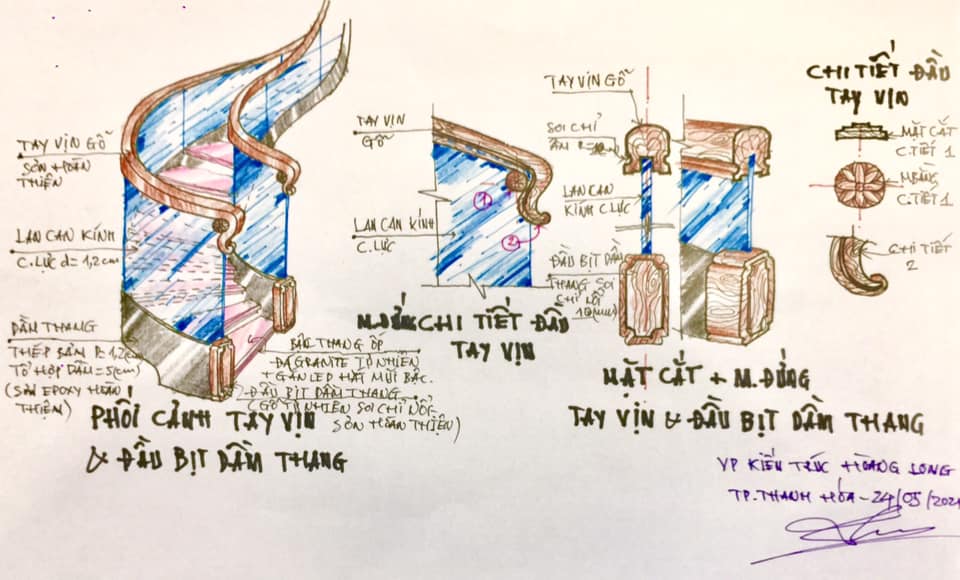 TAY VỊN GỖ
SƠN HOÀN
THIỆN
LAN CAN KÍNH
C.LỰC d=1,2cm
DẦM THANG
THÉP BẢN
TỔ HỢP DẦM=5(cm)
(SƠN EPOXY HOÀN
THIỆN)
BẬC THANG ỐP
ĐÁ GRANITE TỰ NHIÊN
GẮN LED HẮT MŨI BẬC.
ĐẦU BỊT DẦM THANG
(GỖ TỰ NHIÊN SOI CHỈ NỔI
SƠN HOÀN THIỆN)
PHỐI CẢNH TAY VỊN
& ĐẦU BỊT DẦM THANG
TAY VỊN
GỖ
LAN CAN KÍNH
C.LỰC
1
2
M.ĐỨNG CHI TIẾT ĐẦU
TAY VỊN
TAY VỊN GỖ
SOI CHỈ
ÂM
LAN CAN
KÍNH C.LỰC
ĐẦU BỊT DẦM
THANG SOI
CHỈ NỔI
10(mm)
MẶT CẮT + M.ĐỨNG
TAY VỊN & ĐẦU BỊT DẦM THANG
CHI TIẾT ĐẦU
TAY VỊN
MẶT CẮT
C.TIẾT 1
M.BẰNG
C.TIẾT 1
CHI TIẾT
2
VP KIẾN TRÚC HOÀNG LONG
TP.THANH HÓA-24/05/202